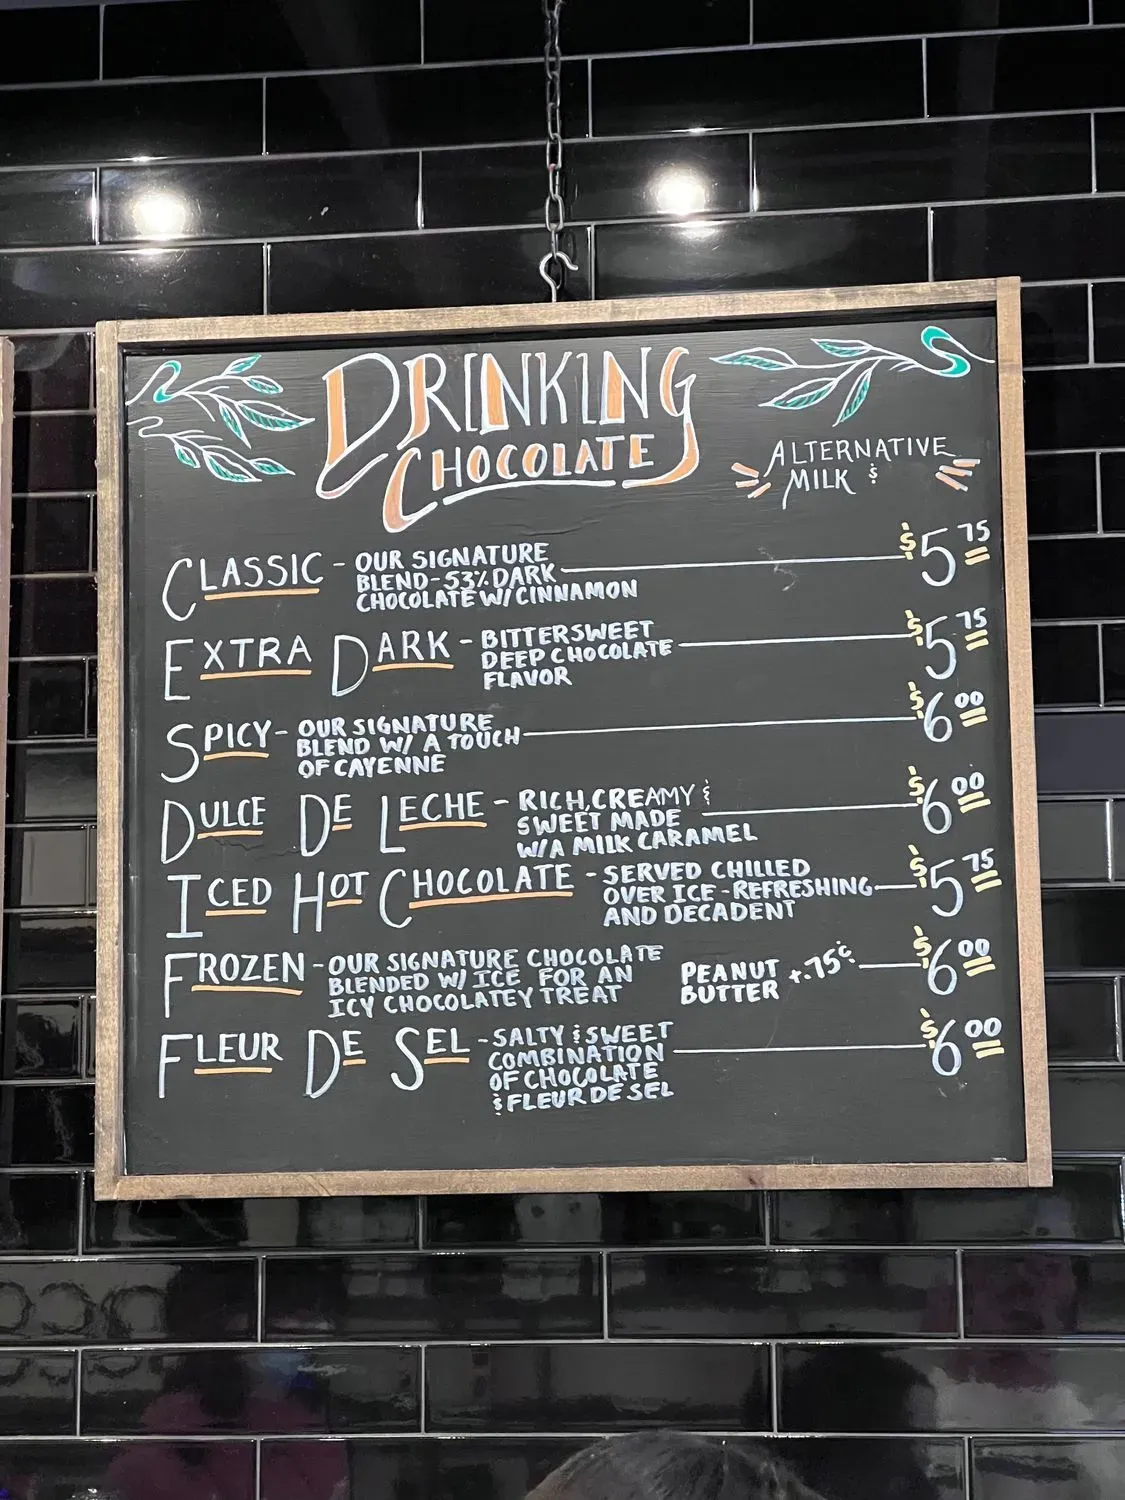 DRINKING
CHOCOLATE
ALTERNATIVE
MILK &
CLASSIC - OUR SIGNATURE
BLEND - 53% DARK
CHOCOLATE W/ CINNAMON
$5 75
EXTRA DARK - BITTERSWEET
DEEP CHOCOLATE
FLAVOR
$5 75
SPICY - OUR SIGNATURE
BLEND W/ A TOUCH
OF CAYENNE
$6 00
DULCE DE LECHE - RICH, CREAMY &
SWEET MADE
W/A MILK CARAMEL
$6 00
ICED HOT CHOCOLATE - SERVED CHILLED
OVER ICE - REFRESHING
AND DECADENT
$5 75
FROZEN - OUR SIGNATURE CHOCOLATE
BLENDED W/ ICE FOR AN
ICY CHOCOLATEY TREAT
PEANUT
BUTTER +.75¢
$6 00
FLEUR DE SEL - SALTY & SWEET
COMBINATION
OF CHOCOLATE
& FLEUR DE SEL
$6 00